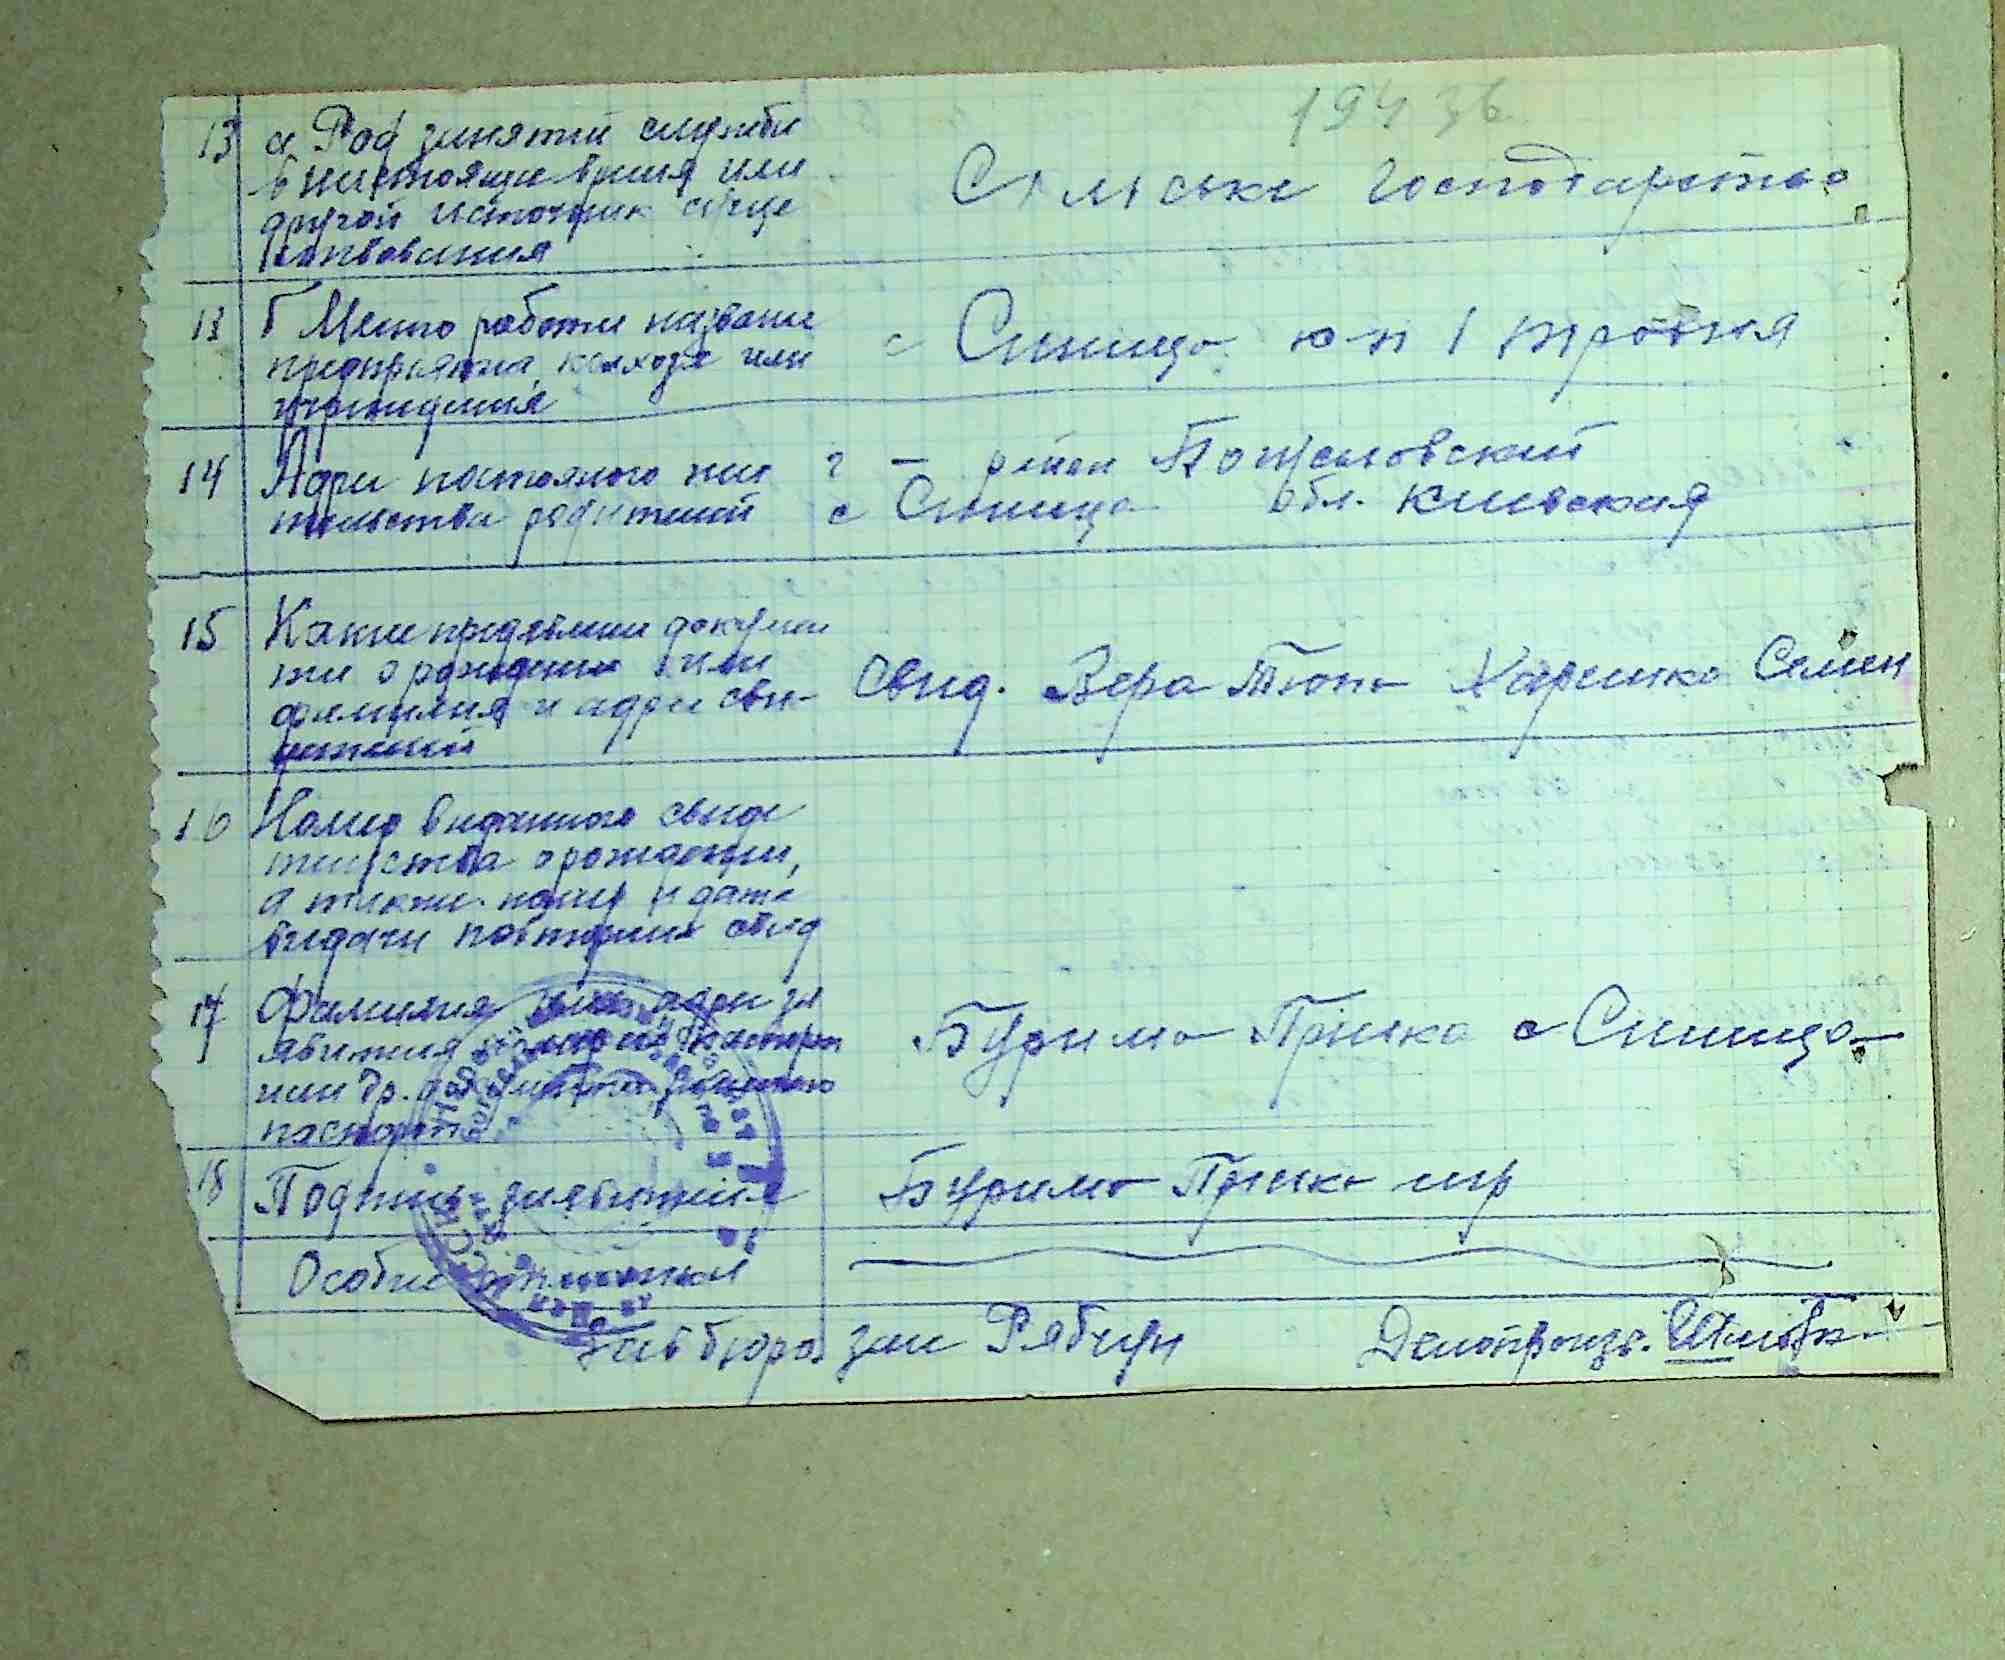 194 зв
13 а Род занятий службы
в настоящи время или
другой источник суще
ствования
Сільське господарство
13 б Место работы названи
предприятия, колхоза или
учреждения
с Синица к-п 1 травня
14 Адри постояного жит
тельства родителей
г — район Богуславский
с Синица обл. Киевская
15 Какие предявлены докумен
ты о рождении или
фамилия и адри сви-
детелей
Свид. Вера Тюпа Харешко Семен
16 Номер выданного свиде
тельства о рождении,
а также номер и дата
выдачи повторния свид
17 Фамилия имя адри за
явителя паспорт
или др.
паспорт
Бурима Пріська с Синица
18 Подпись заявителя
Бурима Пріська
Особие
Завбюро заг Рябчун
Делопроизв.